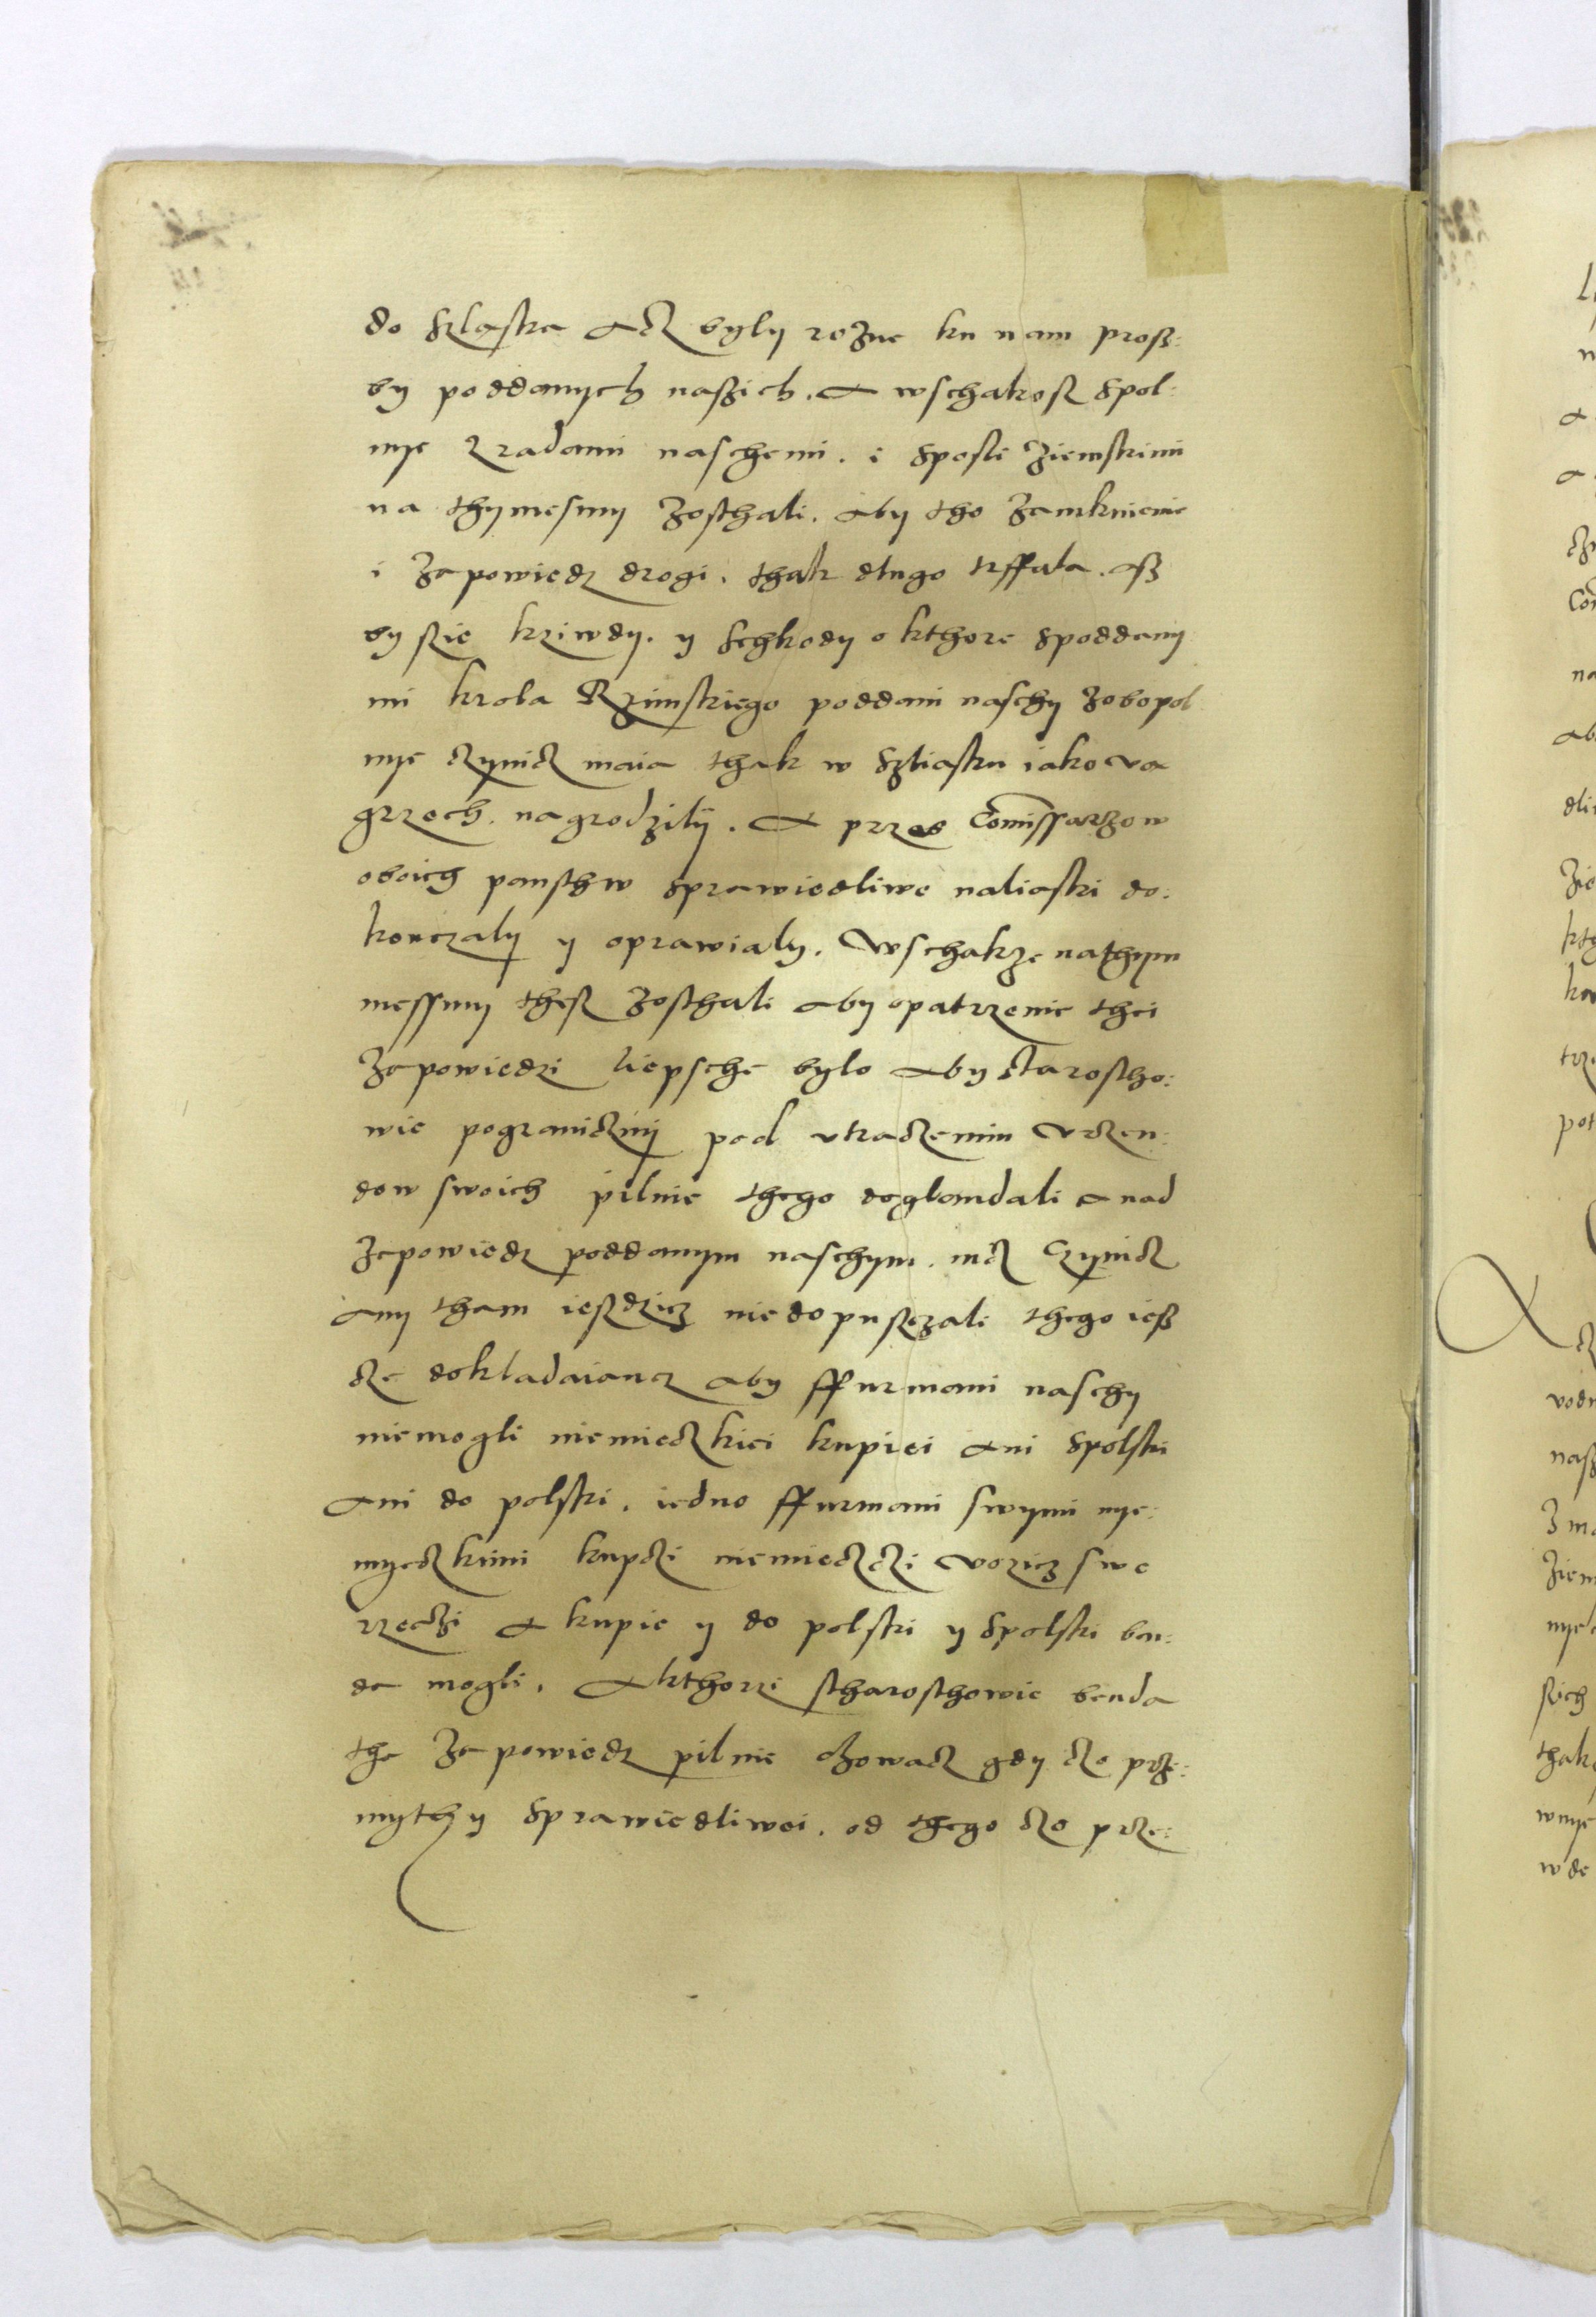 do Szlaska acz byly rozne ku nam prosz:
by poddanych naszich. a wschakosz spol:
nye z radami naschemi. i s posli ziemskimi
na thymesmy zosthali. aby tho zamknienie
i zapowiedz drogi. thak dlugo trffala. asz
by szie kriwdy. y schkody o kthore s poddany
mi krola Rzimskiego poddani naschy zobopol
nye czynicz maia thak w Szliasku iako v a
grzech. nagrodzily. A przes Comissarzow
oboich pansthw sprawiedliwe naliaski do:
konczaly y oprawialy. Wschakze na thym
messmy thesz zosthali aby opatrzenie thei
zapowiedzi liepsche bylo aby starostho:
wie pogranicziny pod vtraczenim vrzen:
dow swoich pilnie thego doglondali a nad
zapowiedz poddanym naschym. nicz czynicz
any tham ieszdzicz nie dopusczali thego iesz
cze dokladaiancz aby ffurmani naschy
niemogli niemieczkiei kupiei ani s polski
ani do polski. iedno ffurmani swymi nye:
myeczkimi kupczi niemieczczi vozicz swe
rzeczi a kupie y do polski y s polski ben:
da mogli. A kthorzi stharosthowie benda
tha zapowiedz pilnie chowacz gdy czo prze:
mythy sprawiedliwei. od thego czo prze: